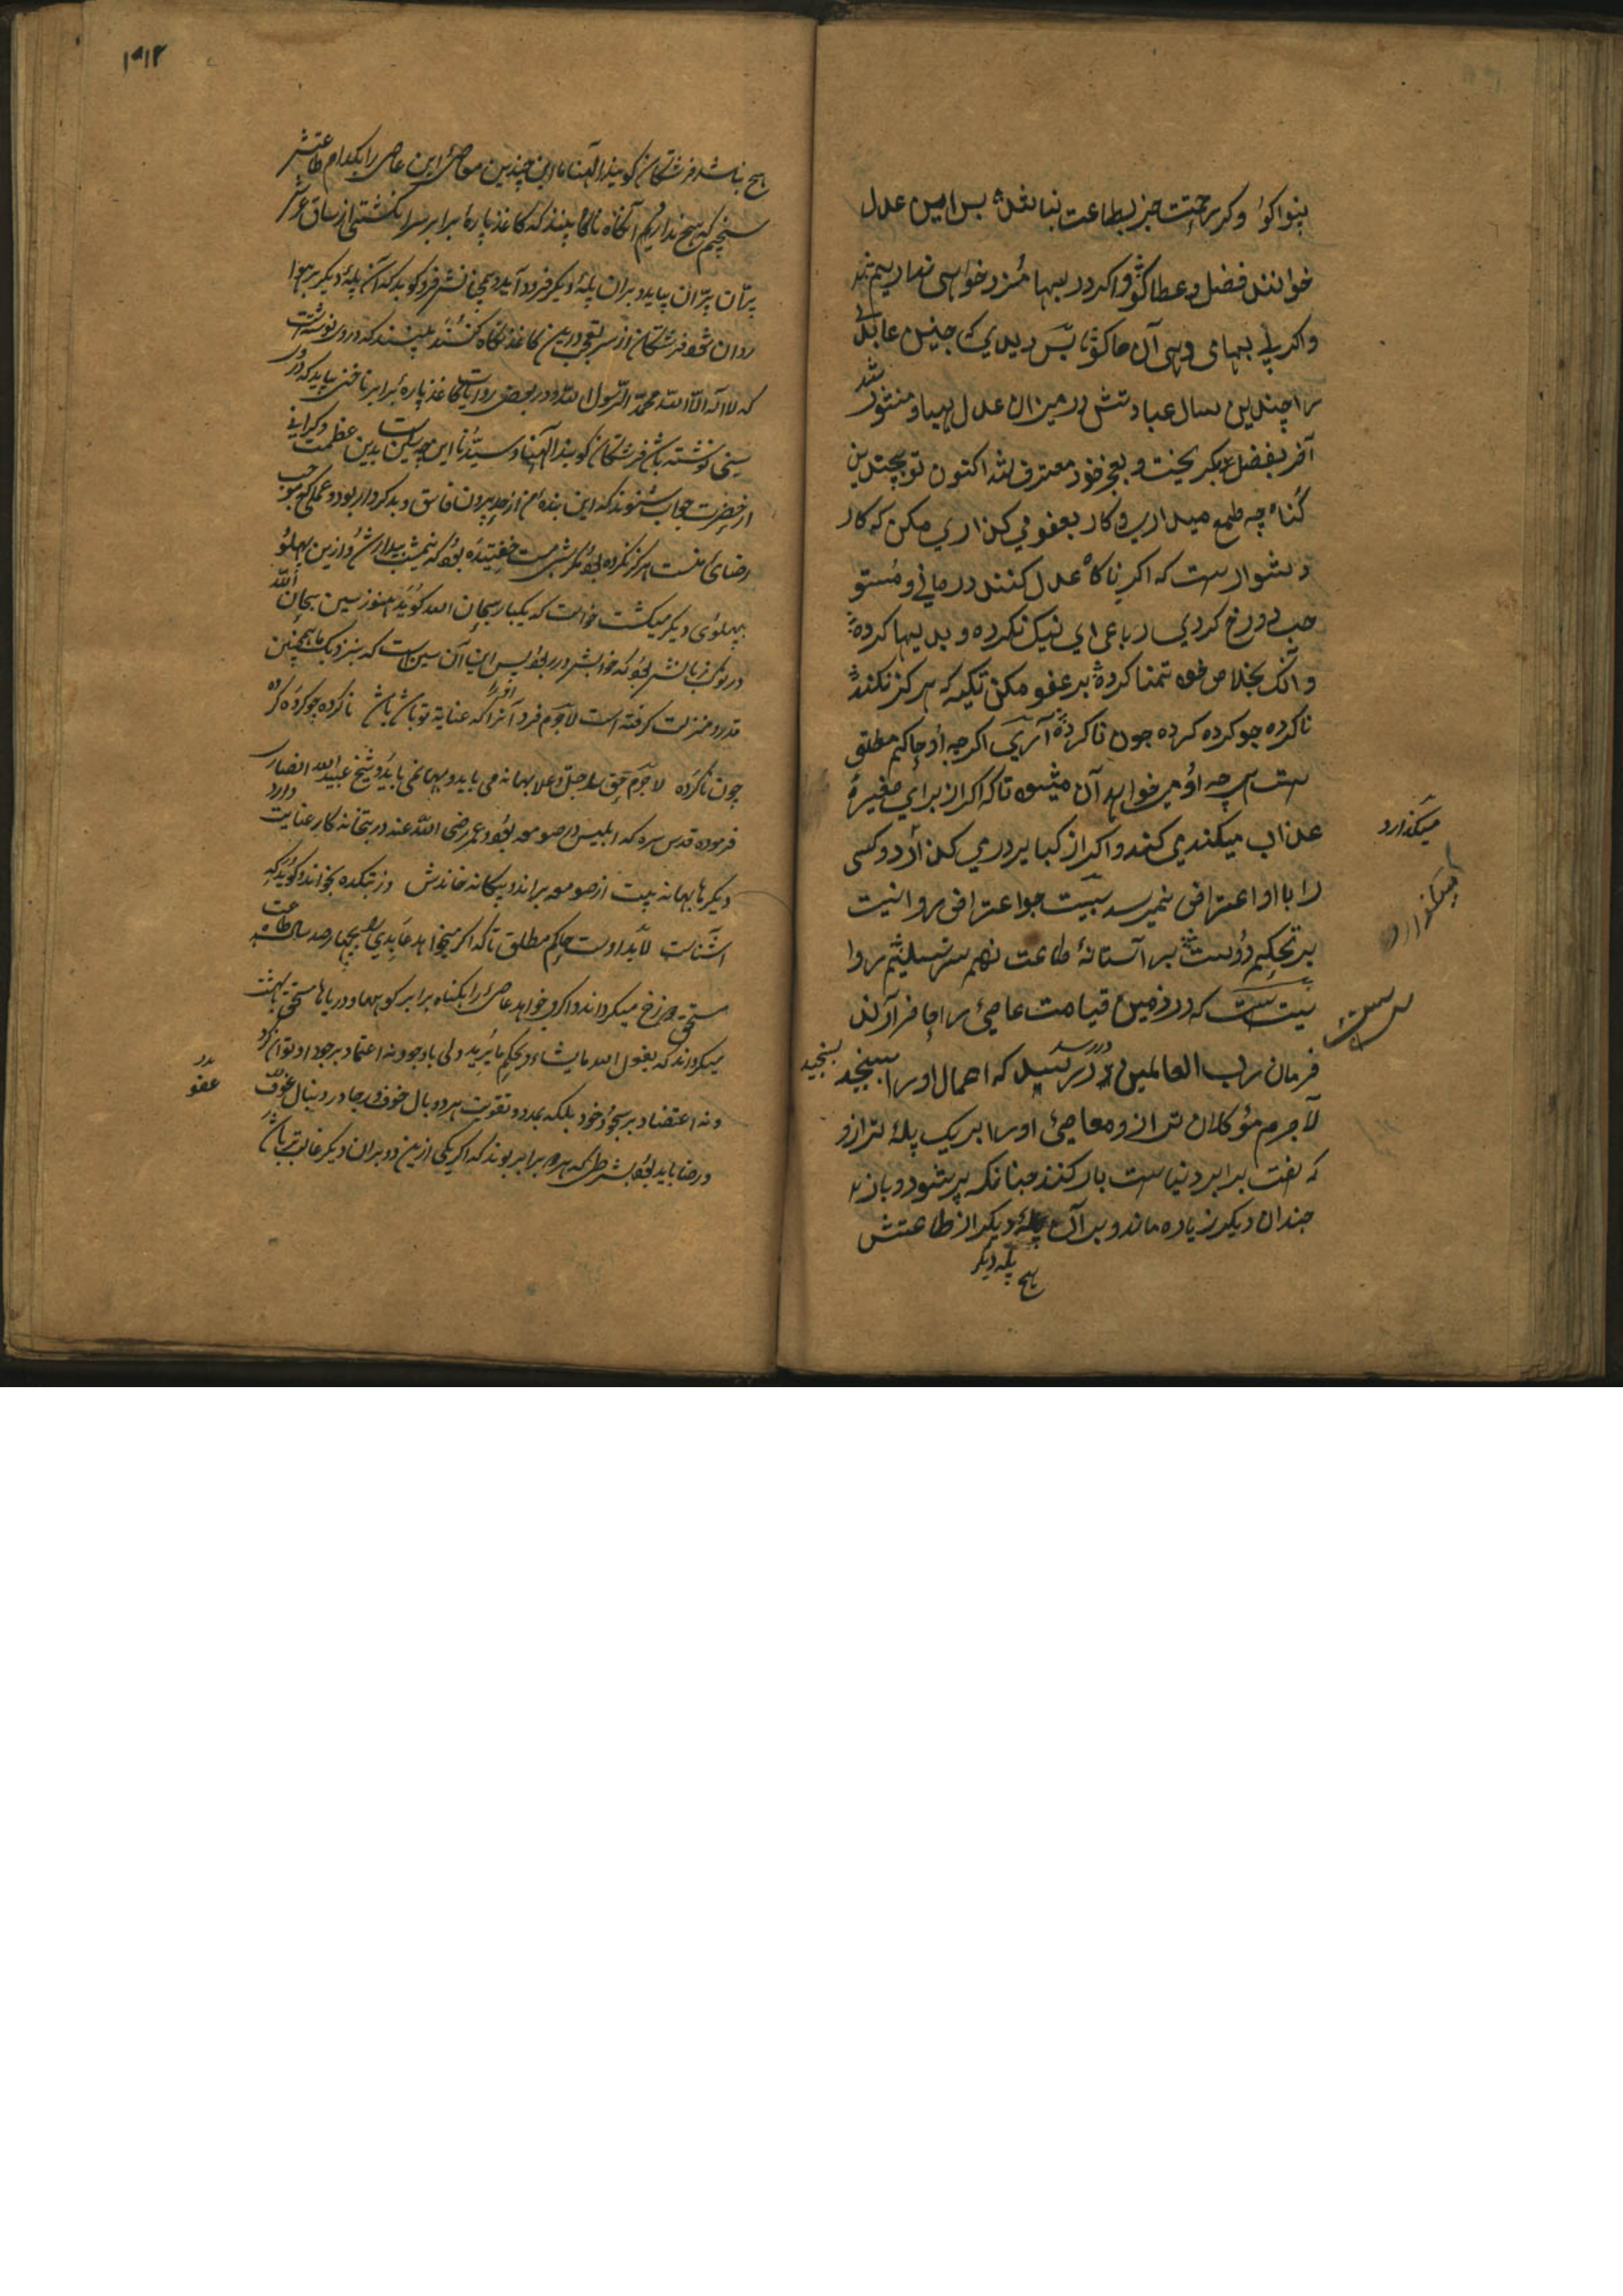 بنواکؤ وکر رحمت جز بطاعت نباشد بس امین عدل
خوانند فضل وعطا کو واکر در بیها مزد خواهی نداریم
واکر بی بهای دهی آن ماکو بس دیدی که جنین عابدی
را چندین سال عبادتش در میزان عدل هبا و منثور شد
آخر بفضل بکریخت و بعجز خود معترف شد اکنون تو بچندین
کناه چه طمع میداری و کار بعفو می کذاری مکن که کار
دشوارست که اکر ناکاه عدل کنند درمانی و مستو
جب دوزخ کردی رباعی ای نیک نکرده و بدیها کرده
وانک بخلاص خود تمنا کرده بر عفو مکن تکیه که هرکز نکند
ناکرده جو کرده کرده جون ناکرده آری اکرجه او حاکم مطلق
ست هر چه او میخواهد آن میشود تا که اکر از برای صغیره
عذاب میکند می کند و اکر از کبایر در می کذارد و کسی
را با او اعتراض نمیرسد بیت جو اعتراض روا نیست
بر تحکم دوست بر آستانه طاعت نهم سر تسلیم روا
یت ست که در زمین قیامت عاصی را حاضر آرند
فرمان رب العالمین در رسد که اعمال او را بسنجید
لاجرم مؤکلان ترازو معاصی او را بر یک پله ترازو
که هفت برابر دنیا ست بار کنند جنانکه پر شود و باز
جندان دیکر زیاده ماند و بر آن پله دیکر از طاعتش
هیچ
پله دیکر
میکذارد
میکذارد
ست
بسنجید
۱۹۱۲
هیچ نباشد فرشتکان کویند الهنا با این چندین معاصی این عاصی را بکدام طاعتش
سنجیم که هیچ نداریم آنکاه ناکاه بینند که کاغذ پاره برابر سر انکشتی از ساق عرش
پران پران بیاید و بران پله دیکر فرود آید و همچنانش فرو کوبد که آن پله دیکر بر هوا
روان شود فرشتکان از سر تعجب در بین کاغذ نکاه کنند بینند که در وی نوشته است
که لا اله الا الله محمد الرسول الله و در بعضی روایات کاغذ پاره برابر ناخن بیاید که در
سینی نوشته باشد فرشتکان کویند الهنا و سیدنا این چه سین است بدین عظمت و کرانی
از حضرت جواب شنوند که این بنده من از حد بیرون فاسق و بدکردار بود و عملی که موجب
رضای منست هرکز نکرده بود مکر شبی مست خفتیده بود که نیمشب بیدار شد و ازین پهلو
بپهلوی دیکر میکشت خواست که یکبار سبحان الله کوید هنوز سین سبحان الله
در نوک زبانش بود که خوابش در ربود پس این آن سین است که بنزدیک ما همچنین
قدر و منزلت کرفته است لاجرم فرد آنرا که عنایت تو باشد باشد ناکرده چو کرده کرده
چون ناکرده لاجرم حق را جل و علا بهانه می باید و بها نمی باید و شیخ عبدالله انصار
فرموده قدس سره که ابلیس در صومعه بود و عمر رضی الله عنه در بتخانه کار عنایت دارد
دیکرها بهانه بیت از صومعه براند و بیکانه خاندش وز بتکده بخواند و کوید که
آشناست لابد اوست حاکم مطلق تا که اکر میخواهد عابدی را بچهار صد ساله طاعت
مستحق دوزخ میکرداند و اکر می خواهد عاصی را بکناه برابر کوهها و دریاها مستحق بهشت
میکرداند که یفعل الله ما یشاء و یحکم ما یرید ولی با وجود نه اعتماد بر جود او توان کرد
و نه اعتضاد بر سجود خود بلکه بمدد و تقویت هر دو بال خوف و رجا در دنبال
و رضا باید بود بشرطی که هر دو برابر بوند که اکر یکی ازین دو بران دیکر غالب تر باشد
عفو